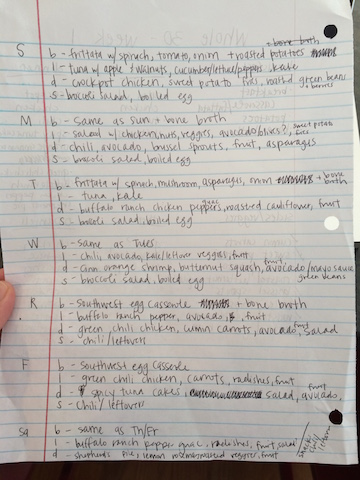 + bone broth
S b - frittata w/ spinach, tomato, onion + roasted potatoes
l - tuna w/ apple + walnuts, cucumber/lettuce/peppers, kale
d - crockpot chicken, sweet potato fries, roasted green beans
+ berries
s - broccoli salad, boiled egg
M b - same as sun + bone broth
l - salad w/ chicken, nuts, veggies, avocado/olives?, sweet potato fries
d - chili, avocado, brussel sprouts, fruit, asparagus
s - broccoli salad, boiled egg
T b - frittata w/ spinach, mushroom, asparagus, onion + bone broth
l - tuna, kale
d - buffalo ranch chicken peppers, guac, roasted cauliflower, fruit
s - broccoli salad, boiled egg
W b - same as Tues
l - chili, avocado, kale/leftover veggies, fruit
d - orange shrimp, butternut squash, fruit, avocado/mayo sauce
green beans
s - broccoli salad, boiled egg
R b - Southwest egg casserole + bone broth
l - buffalo ranch pepper, avocado, fruit
d - green chili chicken, cumin carrots, avocado, fruit, salad
s - chili/leftovers
F b - Southwest egg casserole
l - green chili chicken, carrots, radishes, fruit
d - spicy tuna cakes, salad, fruit, avocado,
s - chili/leftovers
Sa b - same as Th/Fr
l - buffalo ranch pepper guac, radishes, fruit, salad
d - shepherds pie, lemon roasted veggies, fruit